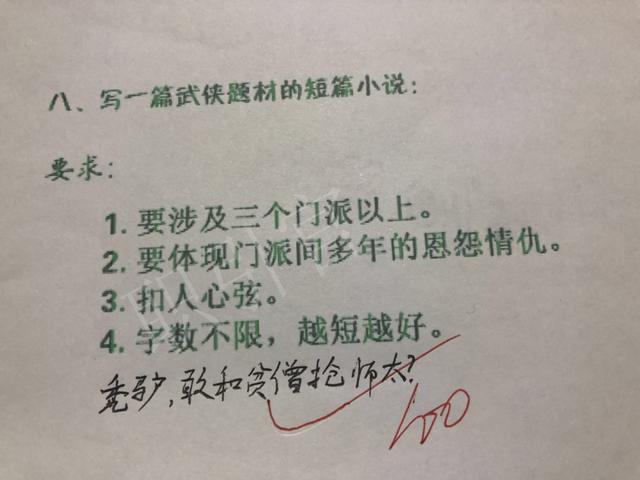 八、写一篇武侠题材的短篇小说:
要求:
1. 要涉及三个门派以上。
2. 要体现门派间多年的恩怨情仇。
3. 扣人心弦。
4. 字数不限，越短越好。
秃驴,敢和贫僧抢师太?
100